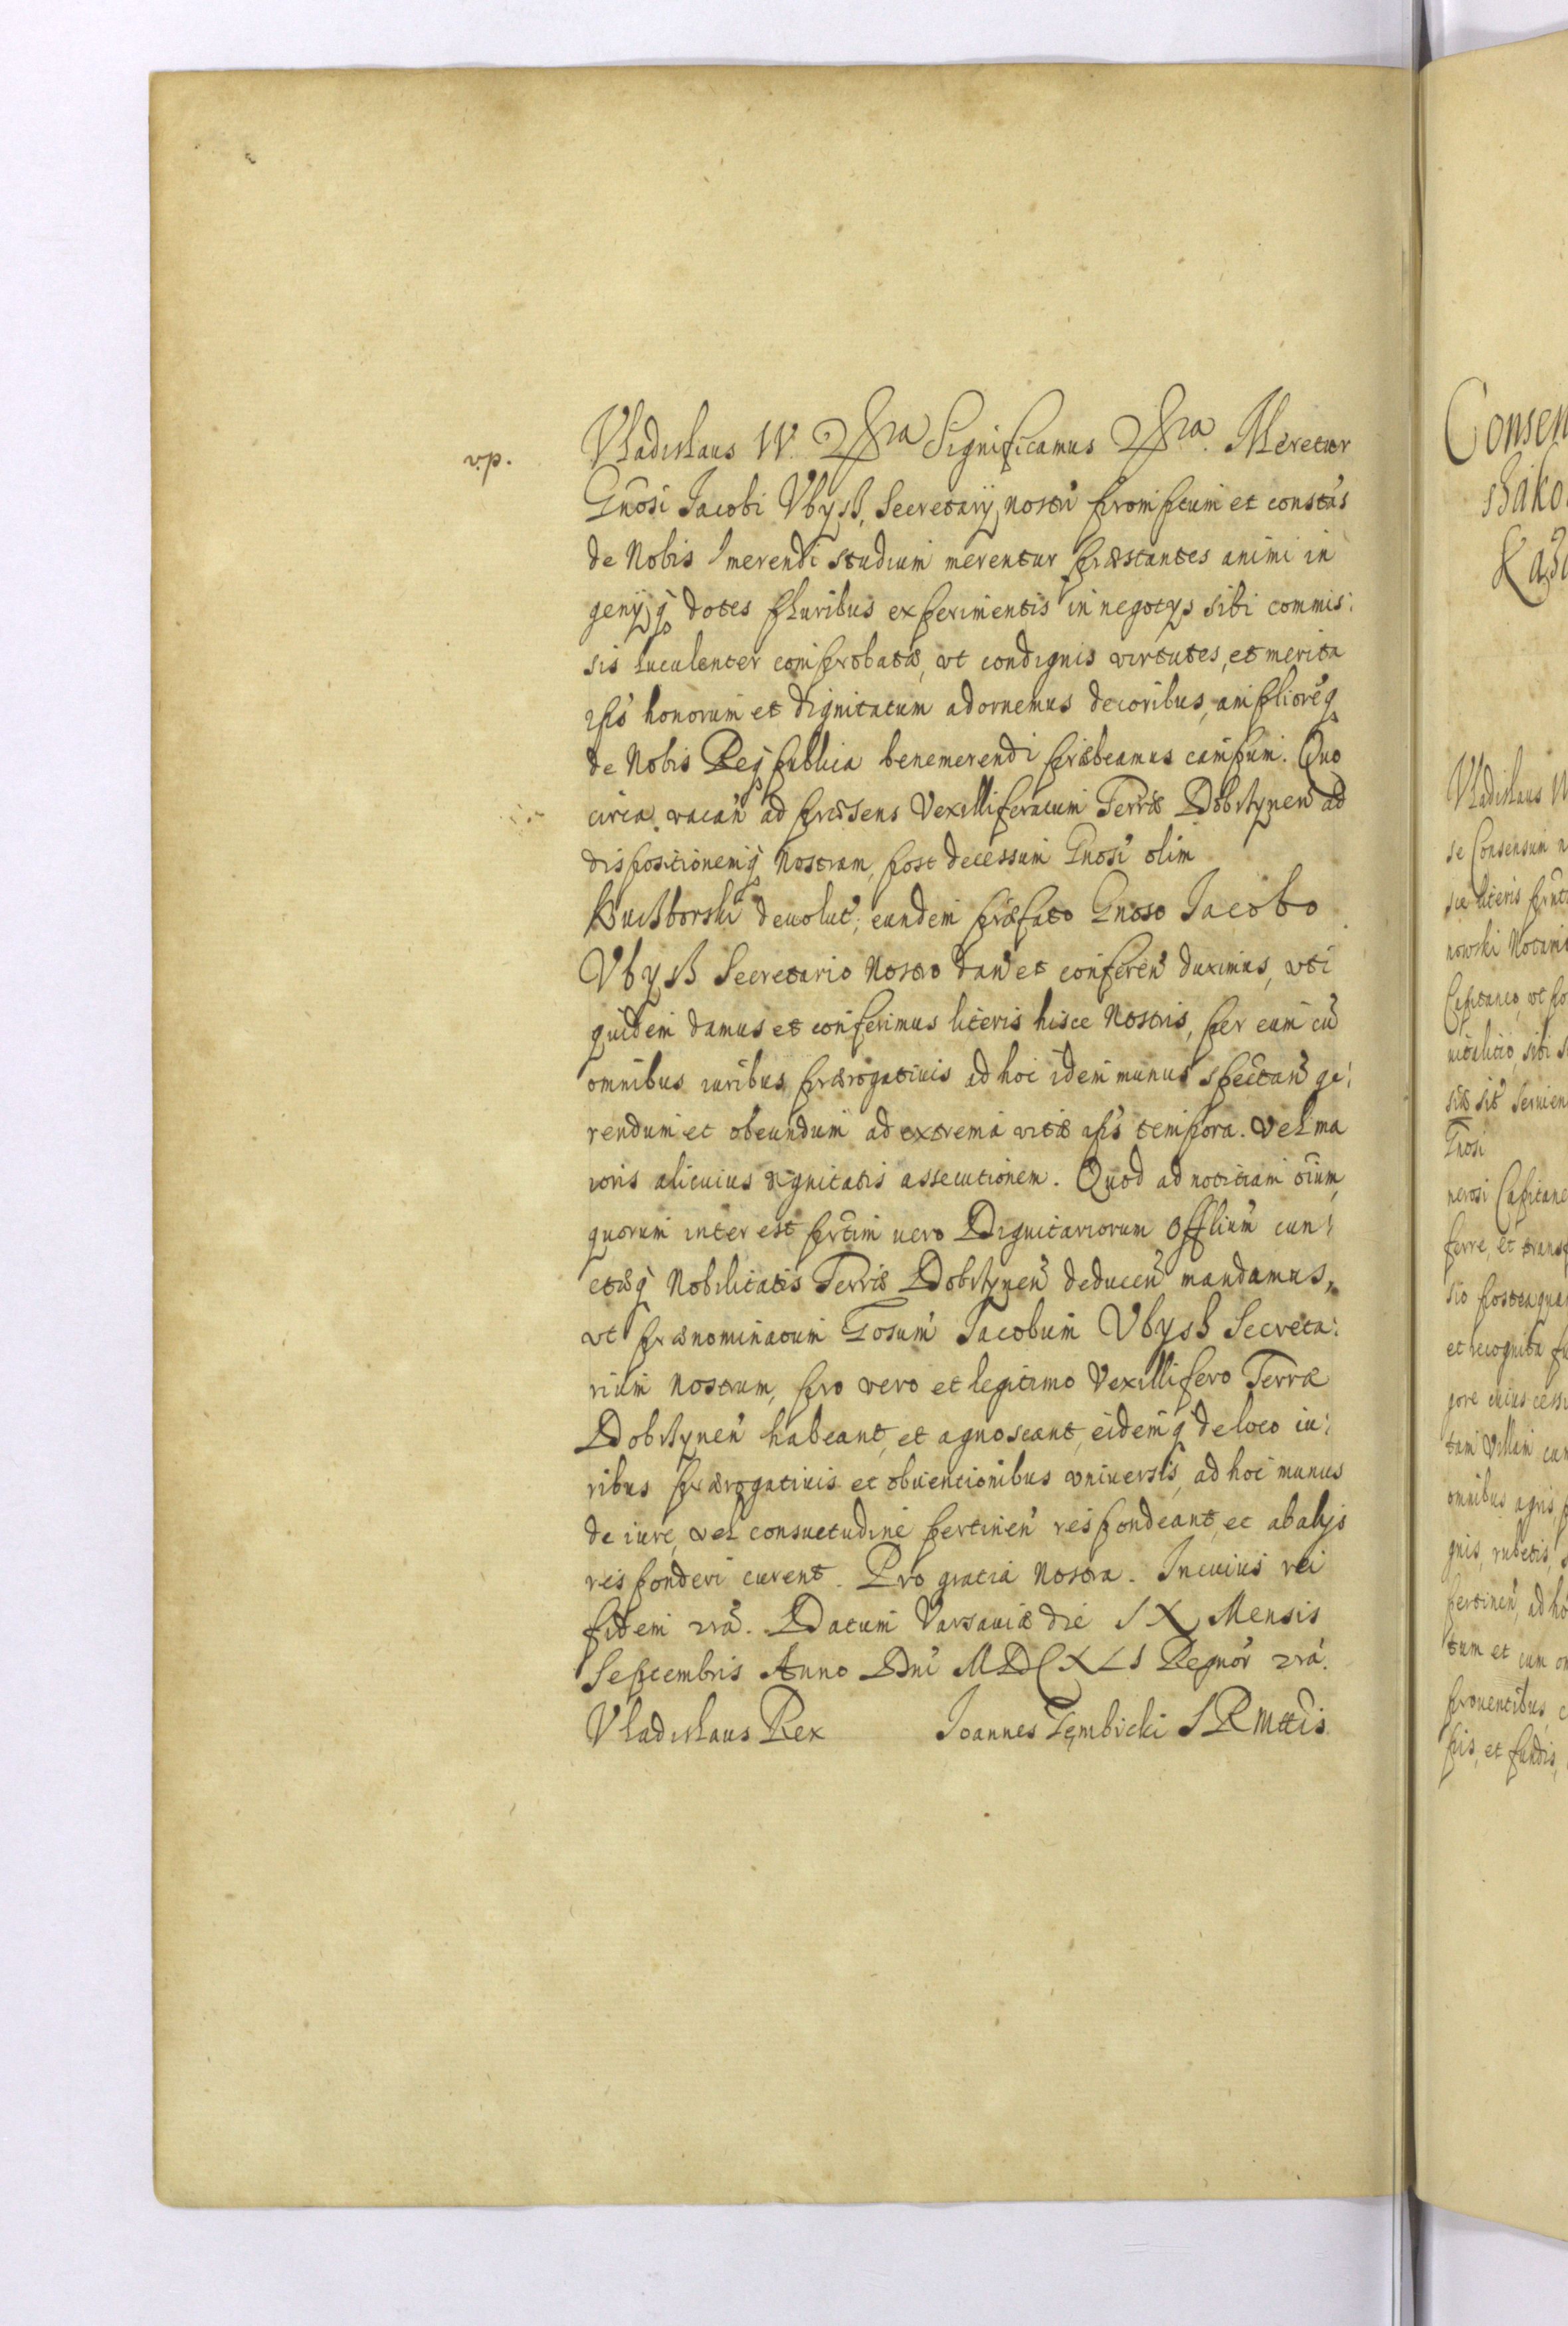 Vladislaus IV. &ra Significamus &ra. Meretur
vip.
Gnosi Jacobi Vbysz, Secretarij nostri promptum et constans
de Nobis merendi studium merentur præstantes animi in
genijq dotes pluribus experimentis in negotys sibi commis:
sis luculenter comprobatæ, vt condignis virtutes, et merita
ipsis honorum et dignitatum adornemus decoribus, amplioreq
de Nobis Reiq publica benemerendi præbeamus campum. Quo
circa vacan ad præsens Vexilliferatum Terræ Dobrzynen ad
dispositionemq Nostram, post decessum Gnosi olim
devolut, eundem præfato Gnoso Jacobo
Vbysz Secretario Nostro dan et conferen duximus, vti
quidem damus et conferimus literis hisce Nostris, per eum cu
omnibus iuribus prærogativis ad hoc idem munus spectan ge:
rendum et obeundum ad extrema vitæ ipsis tempora. Vel ma
ioris alicuius dignitatis assecutionem. Quod ad notitiam oium,
quorum interest prtim vero Dignitariorum Offlium cun:
ctæq Nobilitatis Terræ Dobrzynen deducen mandamus,
vt prænominatum Gosum Jacobum Vbysz Secreta:
rium Nostrum, pro vero et legitimo Vexillifero Terræ
Dobrzynen habeant, et agnoscant, eidemq de loco iu:
ribus prærogativis et obventionibus vniversis, ad hoc munus
de iure, vel consuetudine pertinen respondeant, et ab alijs
responderi curent. Pro gratia Nostra. In cuius rei
fidem nra. Datum Varsaviæ die IX Mensis
Septembris Anno Dni MDCXLI Regnor nra.
Vladislaus Rex Joannes Gembicki SRMttis.
Consen
Vladislaus
se Consensum n
suæ literis
nowski
vitalitio, sibi
Gnosi
nerosi Capitane
ferre, et transf
sio postea qua
et recognita
gore cuius cess
tam Villam cum
omnibus agris,
gnis, rubetis,
pertinen, ad ho
tum et cum om
proventibus, c
et fundis,